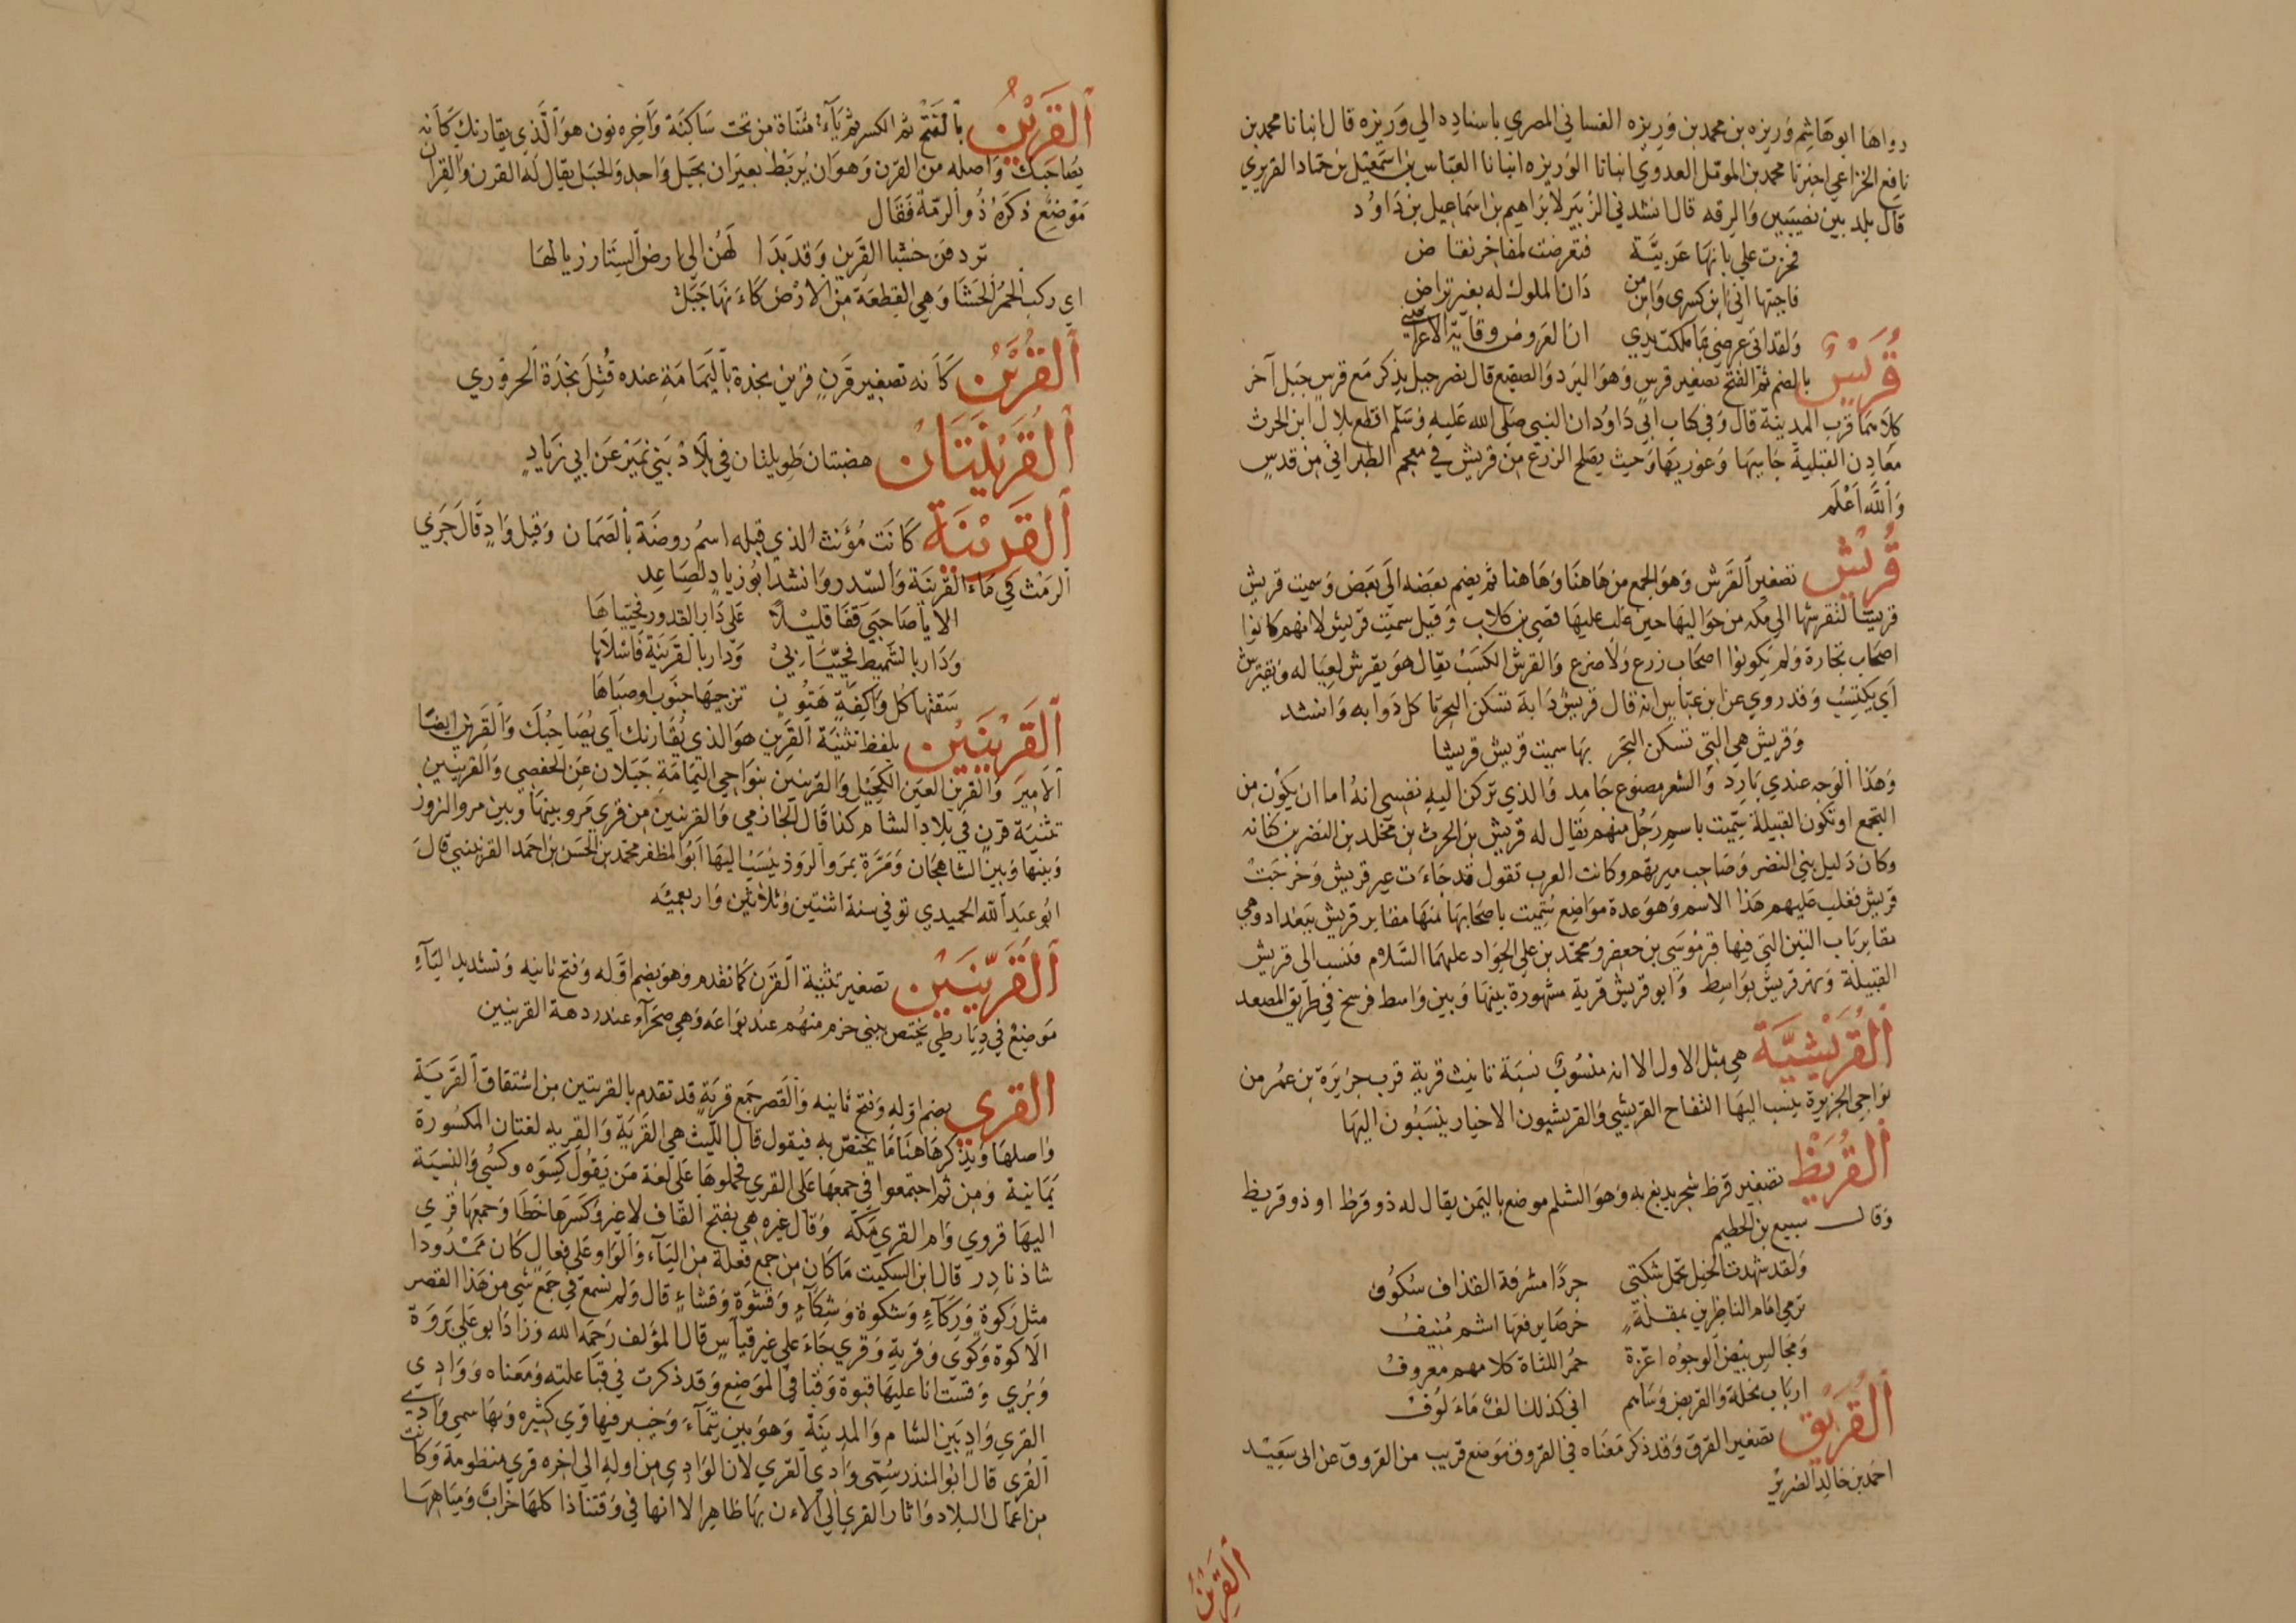 رواها ابو هاشم وريزه بن محمد بن وريزه الغساني المصري باسناده الي وريزه قال انبانا محمد بن
نافع الخزاعي اخبرنا محمد بن الموتل العدوي انبانا الوريزه انبانا العباس بن اسمعيل بن حماد القريري
قال بلد بين نصيبين والرقه قال انشدني الزبير لابراهيم بن اسماعيل بن داود
فخرت علي بانها عربيَّة فتعرضت لمفاخر نقاض
فاجبتها اني ابن كسري وابن من دان الملوك له بغير تراض
ولقد اتي عرضي بما ملكت يدي ان العروض وقاية الاعراض
قُرَيْسُ بالضم ثم الفتح تصغير قرس وهو البرد والصقيع قال نصر جبل يذكر مع قرس جبل آخر
كلاهما قرب المدينة قال وفي كتاب ابي داود ان النبي صلى الله عليه وسلم اقطع بلال ابن الحرث
معادن القبلية جابيها وغوريها وحيث يصلح الزرع من قريش في معجم الطبراني من قدس
والله اعلم
قُرَيْشُ تصغير القرش وهو الجمع من هاهنا وهاهنا ثم يضم بعضه الى بعض وسميت قريش
قريشًا لتقرشها الي مكه من حواليها حين غلب عليها قصي بن كلاب وقيل سميت قريش لانهم كانوا
اصحاب تجارة ولم يكونوا اصحاب زرع ولا ضرع والقرش الكسب يقال هو يقرش لعياله ويقترش
أي يكتسب وقد روي عن ابن عباس انه قال قريش دابة تسكن البحر تاكل دوابه وانشد
وقريش هي التي تسكن البحر بها سميت قريش قريشا
وهذا الوجه عندي بارد والشعر مصنوع جامد والذي تركن اليه نفسي انه اما ان يكون من
التجمع او تكون القبيلة سميت باسم رجل منهم يقال له قريش بن الحرث بن مخلد بن النضر بن كنانه
وكان دليل بني النضر وصاحب ميرتهم وكانت العرب تقول قد جاءت عير قريش وخرجت
قريش فغلب عليهم هذا الاسم وهو عدة مواضع سُمّيت باصحابها منها مقابر قريش ببغداد وهي
مقابر باب التين التي فيها قبر موسى بن جعفر ومحمد بن علي الجواد عليهما السلام فنسب الى قريش
القبيلة ونهر قريش بواسط وابو قريش قرية مشهورة بينها وبين واسط فرسخ في طريق المصعد
اَلقُرَيْشِيَّة هي مثل الاول الا انه منسوب نسبة تانيث قرية قرب جزيرة بن عمر من
نواحي الجزيرة ينسب اليها التفاح القريشي والقريشيون الاخيار ينسبون اليها
اَلقُرَيْظ تصغير قرظ شجر يدبغ به وهو السلم موضع باليمن يقال له ذو قرظ او ذو قريظ
وقال سبيع بن الخطيم
ولقد شهدت الخيل تحمل شكتي جردًا مشرفة القذاف سكوف
ترمي امام الناظرين بمقلةٍ خوصا يرفعها اشم منيف
ومجالس بيض الوجوه اعزة حمر اللثاة كلامهم معروف
ارباب نخلة والقريض وساهم اني كذلك الف مالوف
اَلقُرَيْق تصغير القرق وقد ذكر معناه في القروق موضع قريب من القروق عن ابي سعيد
احمد بن خالد الضرير
اَلقَرِينُ
اَلقَرِيْنُ بالفتح ثم الكسر ثم ياء مثناة من تحت ساكنة وآخره نون هو الذي يقارنك كانه
يصاحبك واصله من القرن وهو ان يُربط بعيران بحبل واحد والحبل يقال له القرن والقران
موضع ذكره ذو الرمة فقال
تردفن خشبا القرين وقد بدا لهن الي ارض الستار زيالها
اي ركب الحمر الحشا وهي القطعة من الارض كانها جبل
اَلقُرَيْن كانه تصغير قرن قرين نجدة باليمامة عنده قُتِل نجدة الحروري
اَلقُرَيْنَتَان هضبتان طويلتان في بلاد بني نمير عن ابي زياد
اَلقَرِيْنَة كانت مؤنث الذي قبله اسم روضة بالصمان وقيل واد قال جري
الرمث في ماء القرينة والسدر وانشد ابو زياد لصاعد
الا يا صاحبي قفا قليلًا على دار القدور فحيياها
ودار بالشميط فحيياني ودار بالقرينة فاسلاها
سقتها كل واكفة هتون تزجيها جنوب او صباها
اَلقَرِيْنَيْن بلفظ تثنية القرين هو الذي يقارنك أي يُصاحبك والقرين ايضًا
الامير والقرين العين الكحيل والقرينين بنواحي اليمامة جبلان عن الحفصي والقرينين
تثنية قرن في بلاد الشام كذا قال الحازمي والقرينين من قري مرو بينها وبين مرو الروذ
وبينها وبين الشاهجان ومرَّة بمرو الروذ ينسب اليها ابو المظفر محمد بن الحسن بن احمد القرينيني قال
ابو عبد الله الحميدي توفي سنة اثنتين وثلاثين واربعمئه
اَلقُرَيّنَيْن تصغير تثنية القرن كما تقدم وهو بضم اوله وفتح ثانيه وتشديد الياء
موضع في ديار طي يختص ببني حزم منهم عند بواعه وهي صحراء عند ردهة القرينين
القري بضم اوله وفتح ثانيه والقصر جمع قرية قد تقدم بالقريتين من اشتقاق القرية
واصلها ويذكر هاهنا ما يختص به فيقول قال الليث هي القَرية والقِريه لغتان المكسورة
يمانية ومن ثم اجتمعوا في جمعها على القري فحملوها على لغة من يقول كسوه وكسي والنسبة
اليها قروي وام القري مكه وقال غيره هي بفتح القاف لا غير وكسرها خطا وجمعها قري
شاذ نادر قال ابن السكيت ما كان من جمع فعلة من الياء والواو على فعال كان ممدودا
مثل ركوة وركاء وشكوة وشكاء وقشوة وقشاء قال ولم نسمع في جمع شي من هذا القصر
الا كوة وكوى وقرية وقري جاء علي غير قياس قال المؤلف رحمه الله وزاد ابو علي بروة
وبري وقستانا عليها قبوة وقبا في الموضع وقد ذكرت في قبا علته ومعناه ووادي
القري واد بين الشام والمدينة وهو بين تيماء وخيبر فيها قري كثيره وبها سمي وادي
القُرى قال ابو المنذر سُمّى وادي القري لان الوادي من اوله الي اخره قري منظومة وكانت
من اعمال البلاد واثار القري الي الان بها ظاهر الا انها في وقتنا ذا كلها خراب ومياهها